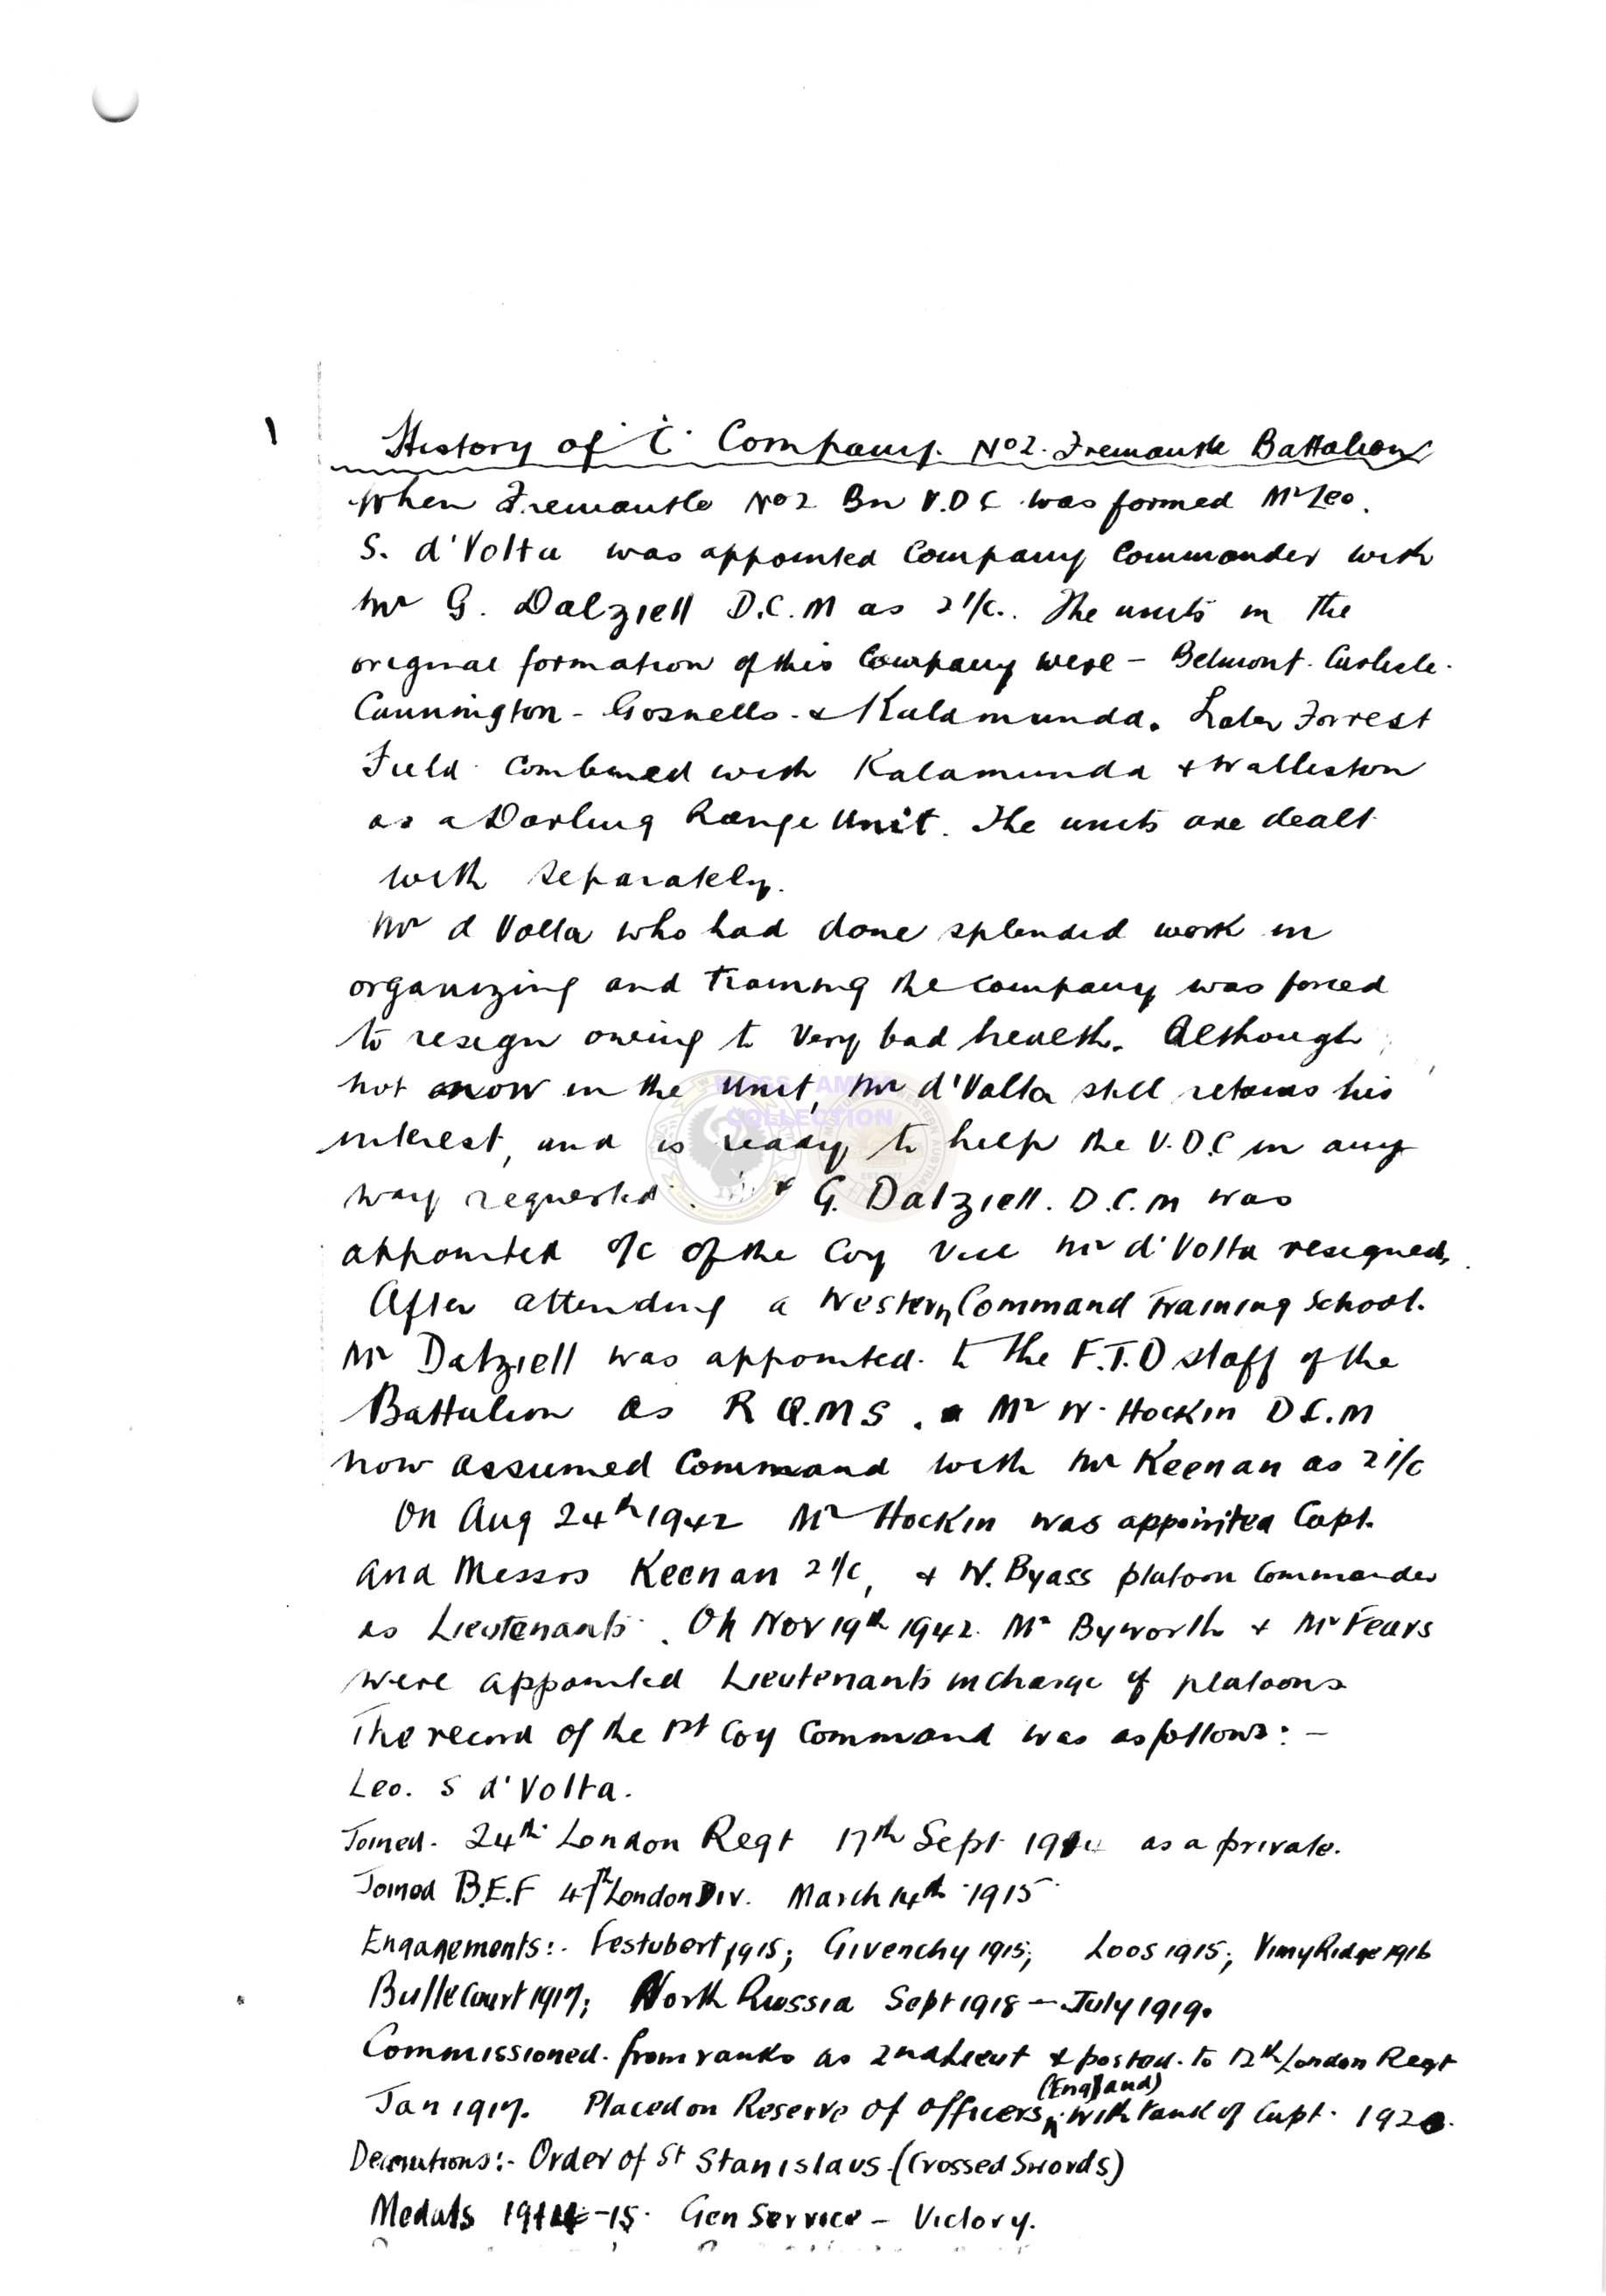 1
History of "C" Company. No 2. Fremantle Battalion
When Fremantle No 2 Bn V.D.C was formed Mr Leo.
S. d'Volta was appointed Company Commander with
Mr G. Dalziell D.C.M as 2 I/C.. The units in the
original formation of this Company were - Belmont. Carlisle.
Cannington - Gosnells - & Kalamunda. Later Forrest
Field combined with Kalamunda & Walliston
as a Darling Range Unit. The units are dealt
with separately.
Mr d Volta who had done splendid work in
organizing and training the company was forced
to resign owing to very bad health. Although
not now in the Unit, Mr d'Volta still retains his
interest, and is ready to help the V.D.C in any
way requested. G. Dalziell. D.C.M was
appointed O/C of the Coy Vice Mr d'Volta resigned.
After attending a Western Command Training School.
Mr Dalziell was appointed. to the F.T.D staff of the
Battalion as R Q.M S. Mr W. Hockin D C.M
now assumed Command with Mr Keenan as 2 i/c
On Aug 24th 1942 Mr Hockin was appointed Capt.
and Messrs Keenan 2 I/C, & W. Byass platoon Commander
as Lieutenants. On Nov 19th 1942. Mr Byworth & Mr Fears
were appointed Lieutenants in charge of platoons
The record of the 1st Coy Command was as follows: -
Leo. S d'Volta.
Joined. 24th London Regt 17th Sept 1914 as a private.
Joined B.E.F 47th London Div. March 14th 1915
Engagements:- Festubert 1915; Givenchy 1915; Loos 1915; Vimy Ridge 1916
Bullecourt 1917; North Russia Sept 1918 - July 1919.
Commissioned. from ranks as 2nd Lieut & posted. to 12th London Regt
(England)
Jan 1917. Placed on Reserve of officers, with rank of Capt. 1920.
Decorations:- Order of St Stanislaus - (Crossed Swords)
Medals 1914-15. Gen Service - Victory.